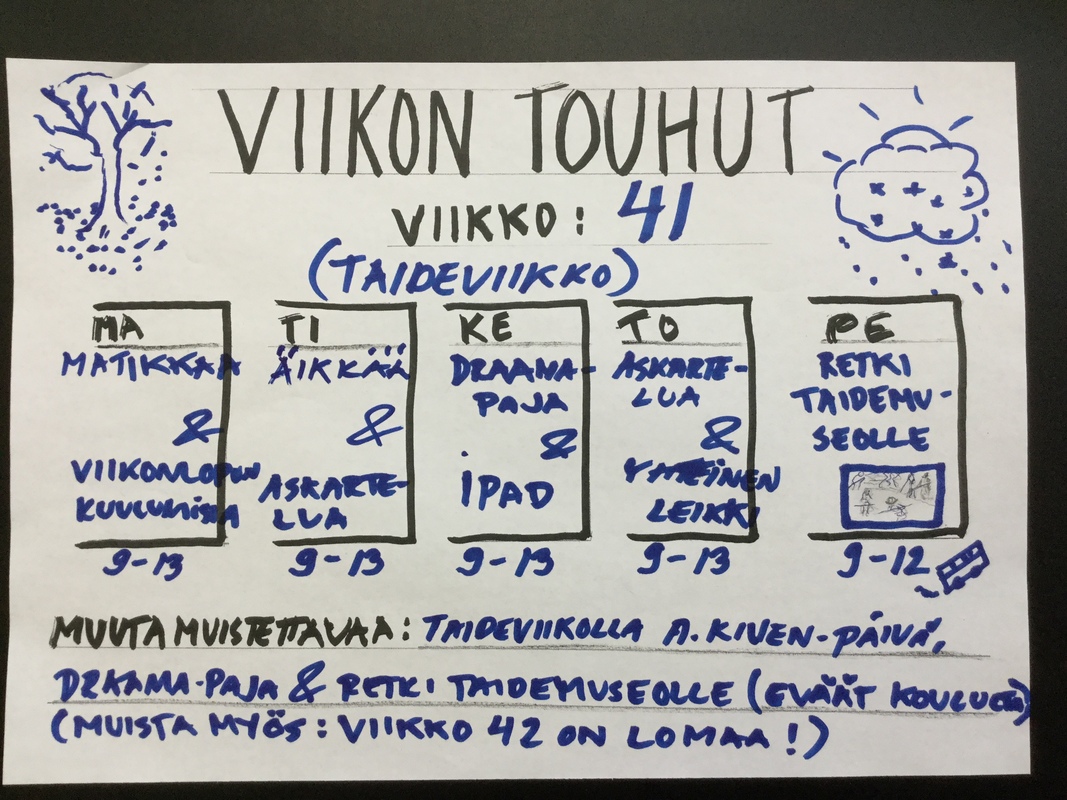 VIIKON TOUHUT
VIIKKO: 41
(TAIDEVIIKKO)
MA
MATIKKAA
&
VIIKONLOPUN
KUULUMISIA
9-13
TI
ÄIKKÄÄ
&
ASKARTE-
LUA
9-13
KE
DRAAMA-
PAJA
&
iPAD
9-13
TO
ASKARTE-
LUA
&
YHTEINEN
LEIKKI
9-13
PE
RETKI
TAIDEMU-
SEOLLE
9-12
MUUTA MUISTETTAVAA: TAIDEVIIKOLLA A. KIVEN-PÄIVÄ,
DRAAMA-PAJA & RETKI TAIDEMUSEOLLE (EVÄÄT KOULULTA)
(MUISTA MYÖS: VIIKKO 42 ON LOMAA!)